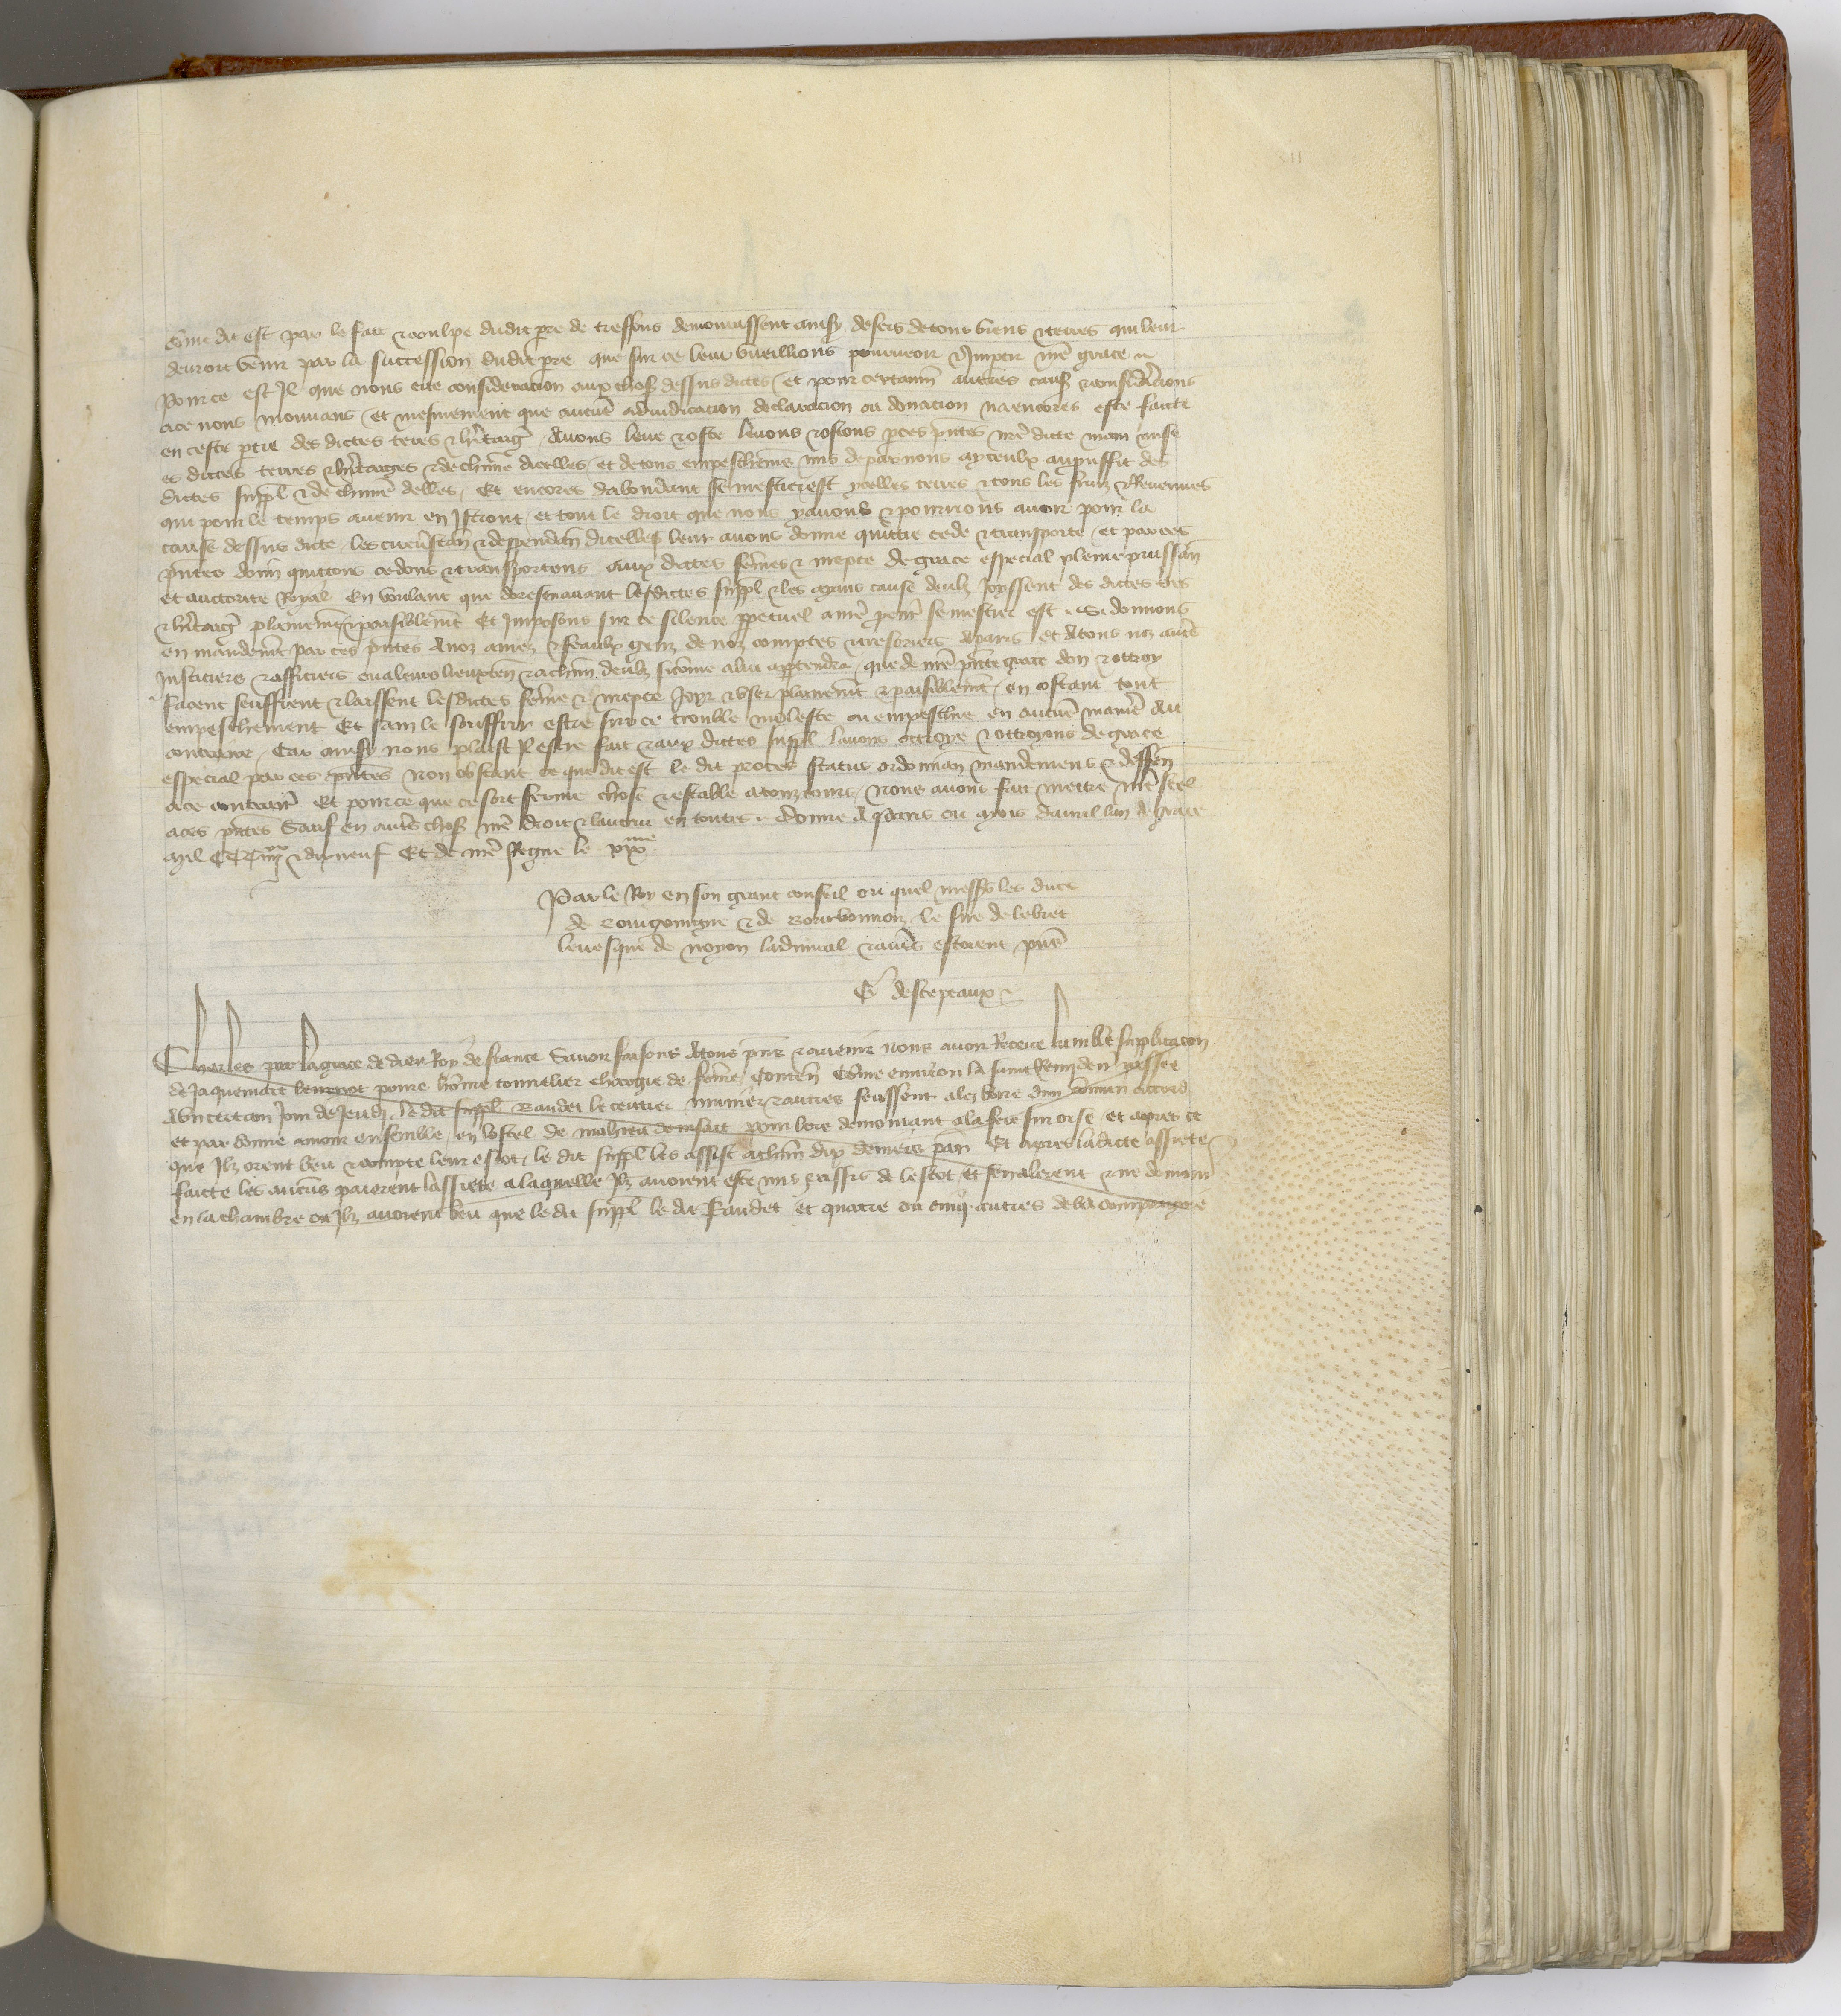 dit est par le fait & coulpe dudit pere de tressons demourassent ainsy desers de touz biens & terres qui leur
devroit venir par la succession dudit pere que sur ce leur vueillions pourveoir & impartir nre grace
Pource est Il que nous eue consideracion aux choses dessus dictes et pour certaines autres causes & consideracions
ace nous mouvans et mesmement que aucune adiudicacion declaracion ou donacion na encores este faicte
en ceste ptie des dictes terres & heritages Avons leve & oste levons & ostons par ces pntes nre dicte main mise
es dictes terres & heritages & de chune dicelles et de tous empeschemens mis de par nous au prouffit des
dictes suppl & de chune delles Et encores dabondant se mestier est ycelles terres & tous les fruiz & Revenues
qui pour le temps avenir en Istront et tout le droit que nous y avons & pourrions avoir pour la
cause dessus dicte les circunstances & dependances dicelles leur avons donne quitte cede & transporte et par ces
pntes donnons quittons cedons & transportons aux dictes femes & niepce de grace especial pleine puissance
et auctorite Royal En voulant que doresenavant lesdictes suppl & les ayans cause deulz joyssent des dictes terres
& heritages plainement & paisiblement Et Imposons sur ce silence ppetuel a nre procur se mestier est Si donnons
en mandement par ces pntes A noz amez & feaulx gens de noz comptes & tresoriers A paris et A tous noz autres
Justiciers & officiers ou a leurs lieuxten & a chun deulz sicome a lui appartendra que de nre pnte grace don & ottroy
facent seuffrent & laissent lesdictes feme & niepce Joyr & user plainement & paisiblement en ostant tout
empeschement Et sanz le souffrir estre sur ce trouble moleste ou empeschie en aucune maniere Au
contraire Car ainsy nous plaist Il estre fait & aux dictes suppl lavons ottroye & ottroyons de grace
especial par ces pntes Non obstant ce que dit est le dit proces status ordonnan mandemens & deffen
ace contraires Et pource que ce soit ferme chose & estable a tousjours nous avons fait mettre nre scel
aces pntes Sauf en autres choses nre droit & lautrui en toutes Donne A Paris ou moys davril lan de grace
mil CCC iiiixx & dixneuf Et de nre Regne le xixme
Par le Roy en son grant conseil ou quel messrs les ducs
de Bourgoingne & de Bourbonnoiz le sire de lebret
levesque de noyon ladmiral & autres estoient pns
G descepeaux
Charles par la grace de dieu Roy de france Savoir faisons A tous pns & avenir nous avoir Receue humble supplicacion
de Jaquemart povre home tonnelier chargie de feme Conten Come environ la saint Remy den passee
A un certain jour de Jeudi le dit suppl Baudet le & autres feussent alez boire dun comun accord
et par bonne amour ensemble en lostel de mahieu pour lors demourant a la fere sur oise et apres ce
que Ilz orent beu & compte leur escot le dit suppl les assist a chun dix deniers par Et apres ladicte assiete
faicte les aucuns paierent lassiete a laquelle Ilz avoient este mis & assis de lescot et senalerent & ne demoura
en la chambre ou Ilz avoient beu que le dit suppl le dit Baudet et quatre ou cinq autres de la compaignie